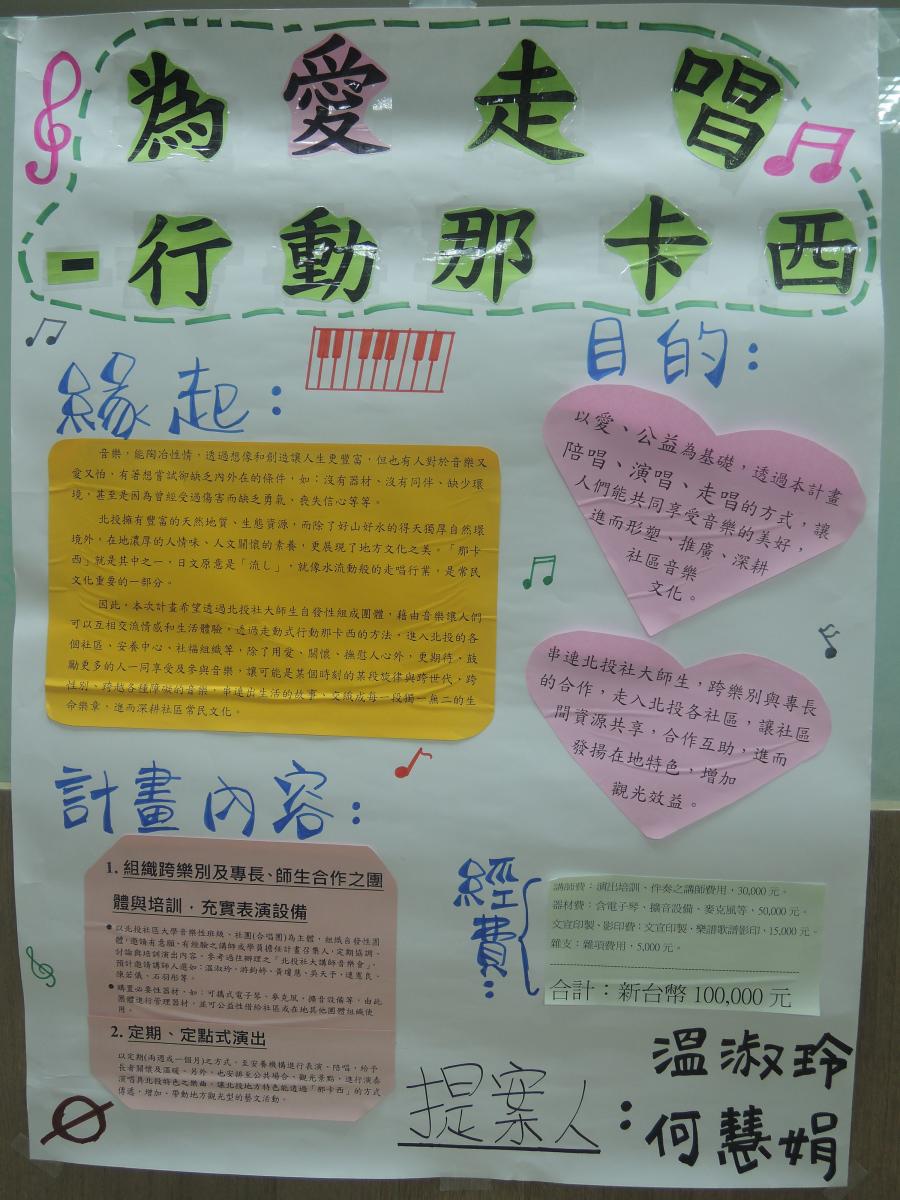 為愛走唱
-行動那卡西
緣起：
音樂，能陶冶性情，透過想像和創造讓人生更豐富，但也有人對於音樂又
愛又怕，有著想嘗試卻缺乏內外在的條件，如：沒有器材、沒有同伴、缺少環
境，甚至是因為曾經受過傷害而缺乏勇氣、喪失信心等等。
北投擁有豐富的天然地質、生態資源，而除了好山好水的得天獨厚自然環
境外，在地濃厚的人情味、人文關懷的素養，更展現了地方文化之美。「那卡
西」就是其中之一，日文原意是「流し」，就像水流動般的走唱行業，是常民
文化重要的一部分。
因此，本次計畫希望透過北投社大師生自發性組成團體，藉由音樂讓人們
可以互相交流情感和生活體驗，透過走動式行動那卡西的方法，進入北投的各
個社區、安養中心、社福組織等，除了用愛、關懷、撫慰人心外，更期待，鼓
勵更多的人一同享受及參與音樂，讓可能是某個時刻的某段旋律與跨世代、跨
性別、跨越各種障礙的音樂，串連出生活的故事，交織成每一段獨一無二的生
命樂章，進而深耕社區常民文化。
目的：
以愛、公益為基礎，透過本計畫
陪唱、演唱、走唱的方式，讓
人們能共同享受音樂的美好，
進而形塑、推廣、深耕
社區音樂
文化。
串連北投社大師生，跨樂別與專長
的合作，走入北投各社區，讓社區
間資源共享，合作互助，進而
發揚在地特色，增加
觀光效益。
計畫內容：
1. 組織跨樂別及專長、師生合作之團
體與培訓，充實表演設備
● 以北投社區大學音樂性班級、社團(合唱團)為主體，組織自發性團
體，邀請有意願、有經驗之講師或學員擔任計畫召集人，定期協調、
討論與培訓演出內容。參考過往辦理之「北投社大講師音樂會」，
預計邀請講師人選如：溫淑玲、游鈞婷、黃瓊慧、吳天予、連憲良、
陳若儀、石羽彤等。
● 購置必要性器材，如：可攜式電子琴、麥克風、擴音設備等，由此
團體進行管理器材，並可公益性借給社區或在地其他團體組織使
用。
2. 定期、定點式演出
以定期(兩週或一個月)之方式，至安養機構進行表演、陪唱，給予
長者關懷及溫暖。另外，也安排至公共場合、觀光景點，進行演奏
演唱具北投特色之樂曲，讓北投地方特色能透過「那卡西」的方式
傳遞，增加、帶動地方觀光型的藝文活動。
經費：
講師費：演出培訓、伴奏之講師費用，30,000 元。
器材費：含電子琴、擴音設備、麥克風等，50,000 元。
文宣印製、影印費：文宣印製、樂譜歌譜影印，15,000 元。
雜支：雜項費用，5,000 元。
合計：新台幣 100,000 元
提案人：
溫淑玲
何慧娟